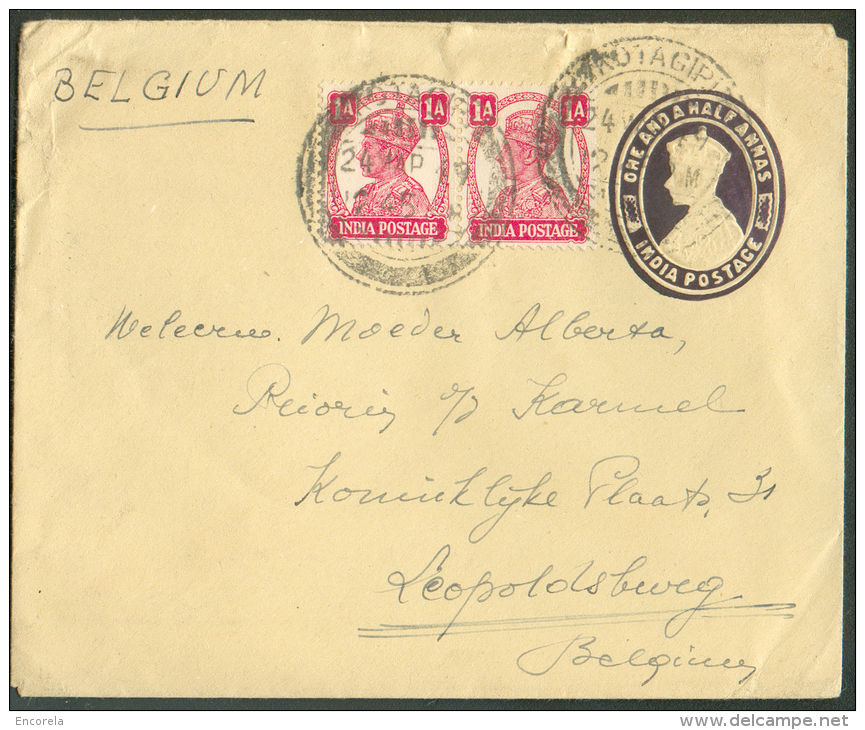 BELGIUM
1A 1A
INDIA POSTAGE
1A 1A
INDIA POSTAGE
KOTAGIRI
24 
12.45
KOTAGIRI
24
ONE AND A HALF ANNAS
INDIA POSTAGE
Weleerw. Moeder Alberta,
Priorin o/d Karmel
Koninklijke Plaats, 31
Leopoldsburg
Belgium
Encorela
www.delcampe.net